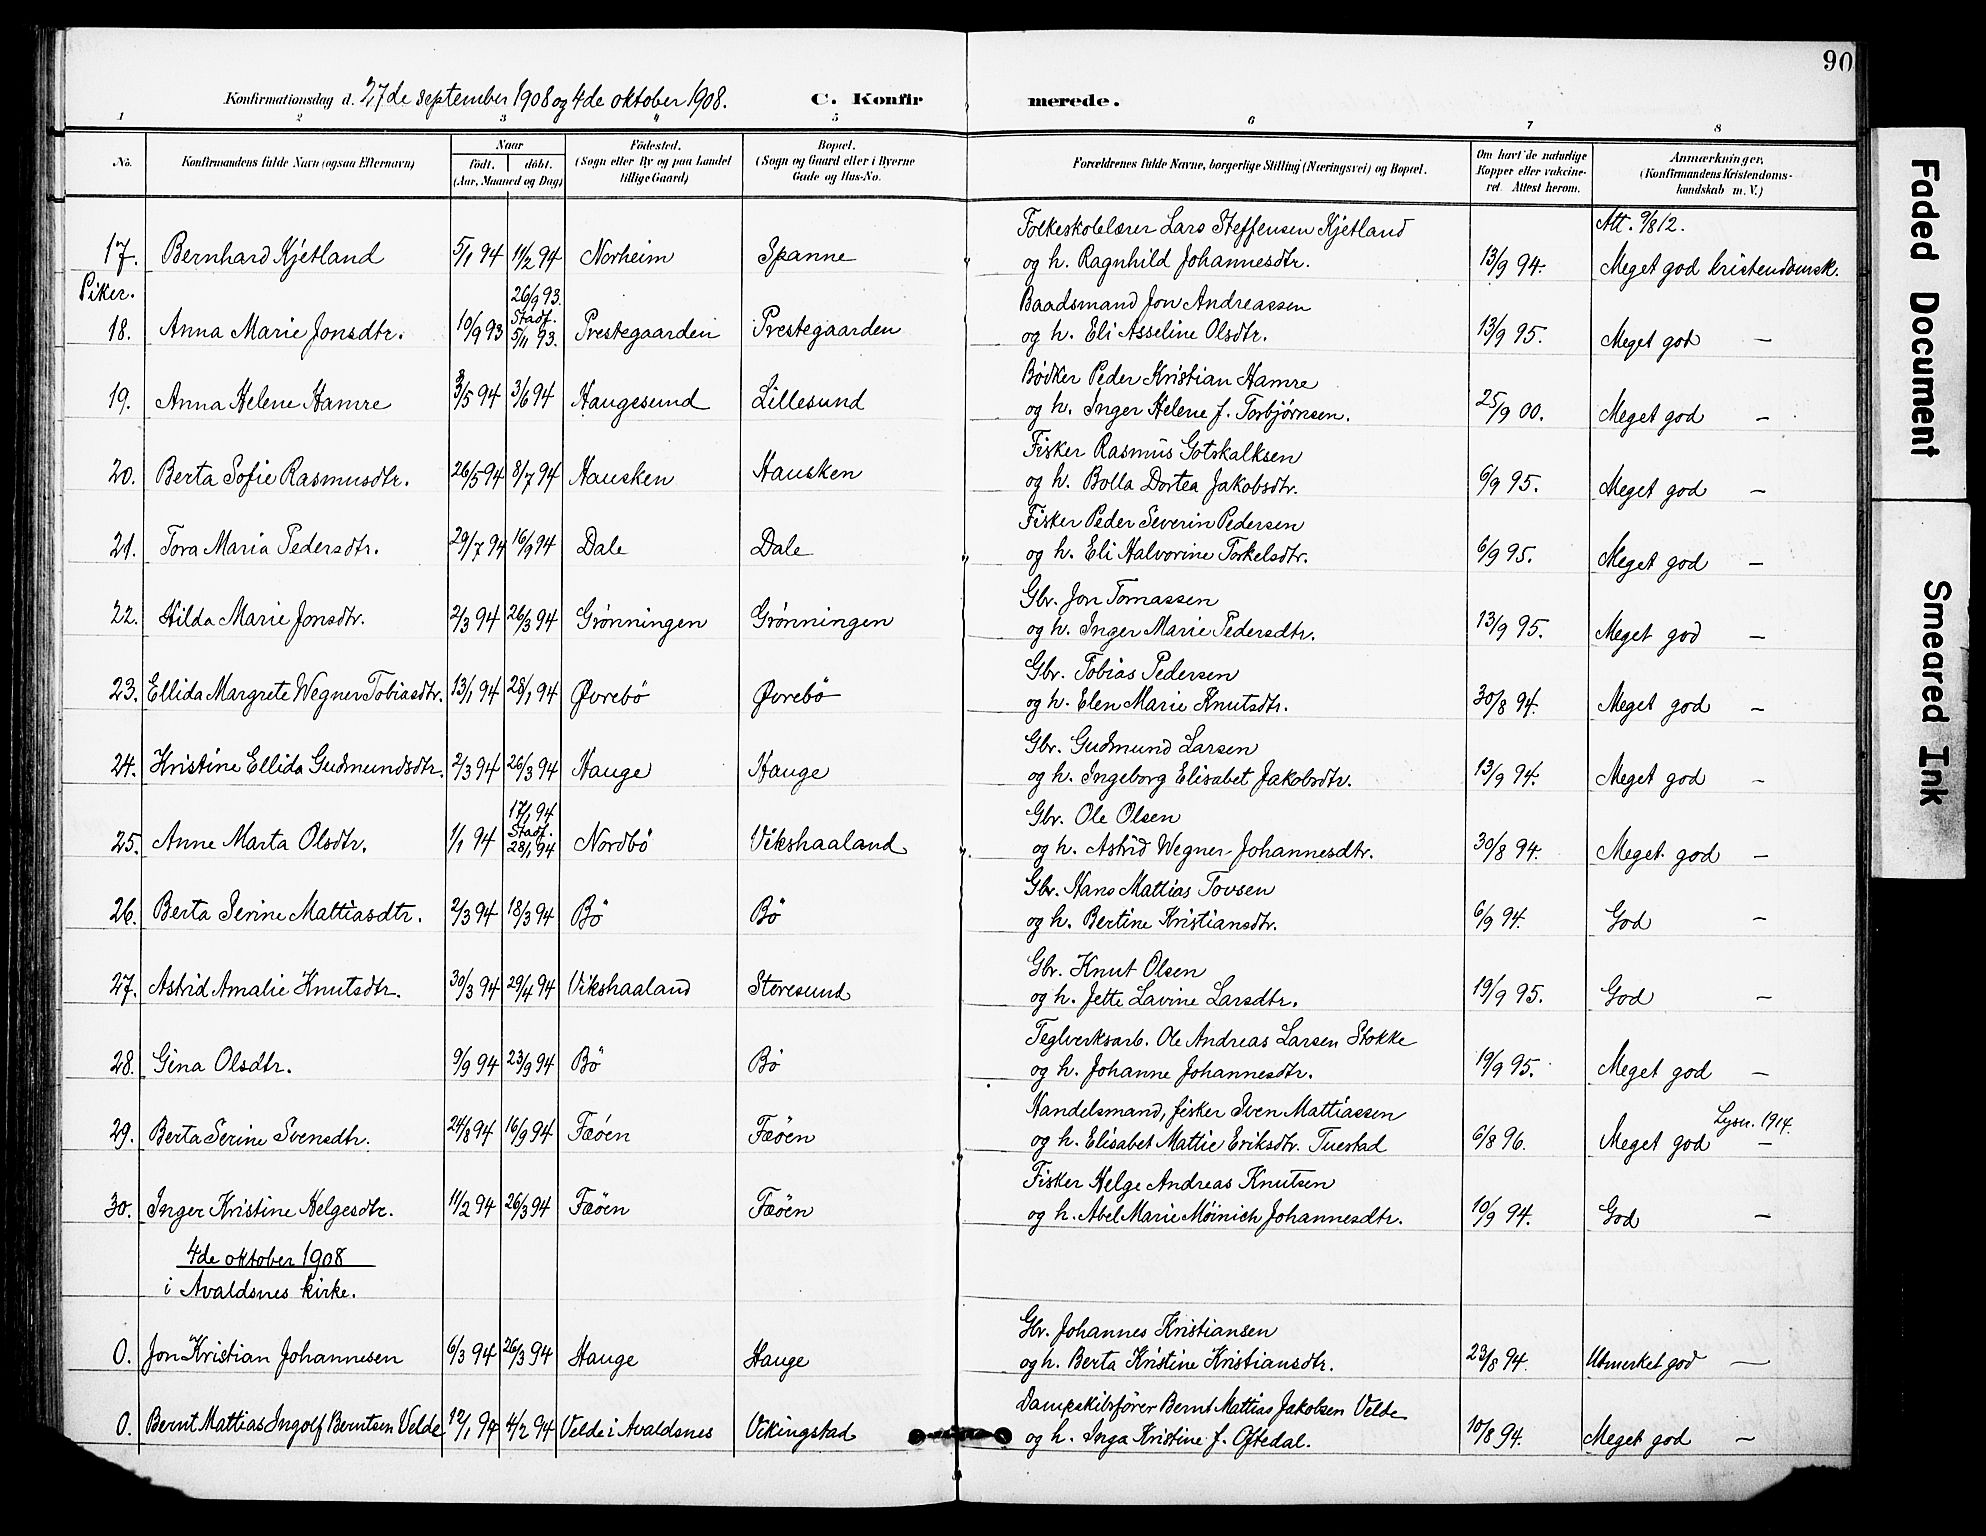 90
Konfirmationsdag d. 27de september 1908 og 4de oktober 1908. C. Konfirmerede.
1 2 3 4 5 6 7 8
No. Konfirmandens fulde Navn (ogsaa Efternavn) Naar født. døbt. (Aar, Maaned og Dag) Fødested. (Sogn eller By og paa Landet tillige Gaard) Bopæl. (Sogn og Gaard eller i Byerne Gade og Hus-No. Forældrenes fulde Navne, borgerlige Stilling (Næringsvei) og Bopæl. Om havt de naturlige Kopper eller vakcineret. Attest herom. Anmærkninger, (Konfirmandens Kristendomskundskab m. V.)
Folkeskolelærer Lars Steffensen Kjetland Att. 9/8 12.
17. Bernhard Kjetland 5/1 94 11/2 94 Norheim Spanne og h. Ragnhild Johannesdtr. 13/9 94. Meget god kristendomsk.
Piker. 26/9 93. Baadsmand Jon Andreassen
18. Anna Marie Jonsdtr. 10/9 93 Stadf. 5/11 93. Prestegaarden Prestegaarden og h. Eli Asseline Olsdtr. 13/9 95. Meget god —
Bödker Peder Kristian Hamre
19. Anna Helene Hamre 3/5 94 3/6 94 Haugesund Lillesund og h. Inger Helene f. Torbjørnsen. 25/9 00. Meget god —
Fisker Rasmus Gotskalksen
20. Berta Sofie Rasmusdtr. 26/5 94 8/7 94 Hausken Hausken og h. Bolla Dortea Jakobsdtr. 6/9 95. Meget god —
Fisker Peder Severin Pedersen
21. Tora Maria Pedersdtr. 29/7 94 16/9 94 Dale Dale og h. Eli Halvorine Torkelsdtr. 6/9 95. Meget god —
Gbr. Jon Tomassen
22. Hilda Marie Jonsdtr. 2/3 94 26/3 94 Grønningen Grønningen og h. Inger Marie Pedersdtr. 13/9 95. Meget god —
Gbr. Tobias Pedersen
23. Ellida Margrete Wegner Tobiasdtr. 13/1 94 28/1 94 Øvrebö Øvrebö og h. Elen Marie Knutsdtr. 30/8 94. Meget god —
Gbr. Gudmund Larsen
24. Kristine Ellida Gudmundsdtr. 2/3 94 26/3 94 Hauge Hauge og h. Ingeborg Elisabet Jakobsdtr. 13/9 94. Meget god —
17/1 94 Gbr. Ole Olsen
25. Anne Marta Olsdtr. 1/1 94 Stadf. 28/1 94 Nordbö Vikshaaland og h. Astrid Wegner Johannesdtr. 30/8 94. Meget god —
Gbr. Hans Mattias Tovsen
26. Berta Serine Mattiasdtr. 2/3 94 18/3 94 Bö Bö og h. Bertine Kristiansdtr. 6/9 94. God —
Gbr. Knut Olsen
27. Astrid Amalie Knutsdtr. 30/3 94 29/4 94 Vikshaaland Storesund og h. Jette Lavine Larsdtr. 19/9 95. God —
Teglverksarb. Ole Andreas Larsen Stokke
28. Gina Olsdtr. 9/9 94 23/9 94 Bö Bö og h. Johanne Johannesdtr. 19/9 95. Meget god —
Handelsmand, fisker Sven Mattiassen Lysn. 1914.
29. Berta Serine Svensdtr. 24/8 94 16/9 94 Fæöen Fæöen og h. Elisabet Mattie Eriksdtr. Tuestad 6/8 96. Meget god —
Fisker Helge Andreas Knutsen
30. Inger Kristine Helgesdtr. 11/2 94 26/3 94 Fæöen Fæöen og h. Abel Marie Möinich Johannesdtr. 10/9 94. God —
4de oktober 1908
i Avaldsnes kirke.
Gbr. Johannes Kristiansen
0. Jon Kristian Johannesen 6/3 94 26/3 94 Hauge Hauge og h. Berta Kristine Kristiansdtr. 23/8 94. Utmerket god —
Dampskibsfører Bernt Mattias Jakobsen Velde
0. Bernt Mattias Ingolf Berntsen Velde 12/1 94 4/2 94 Velde i Avaldsnes Vikingstad og h. Inga Kristine f. Oftedal. 10/8 94. Meget god —
Faded Document
Smeared Ink